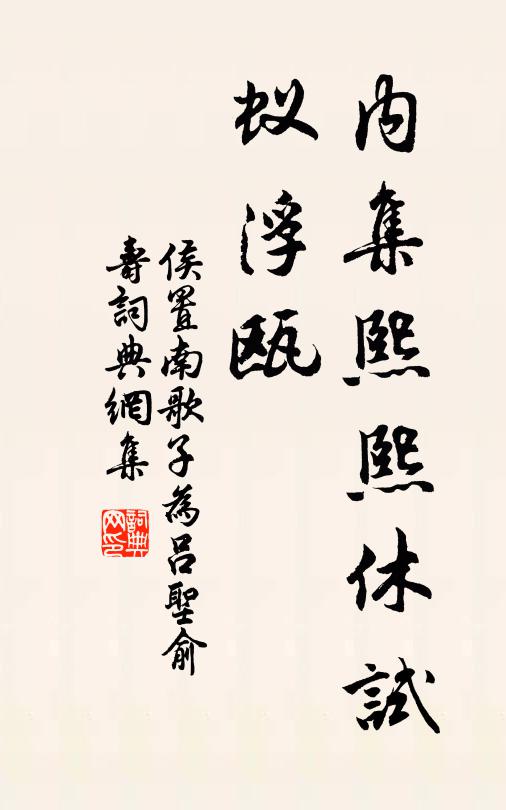 内集熙熙休試
蚁浮瓯
侯置南歌子為吕聖俞
壽詞典網集
詞典
网印